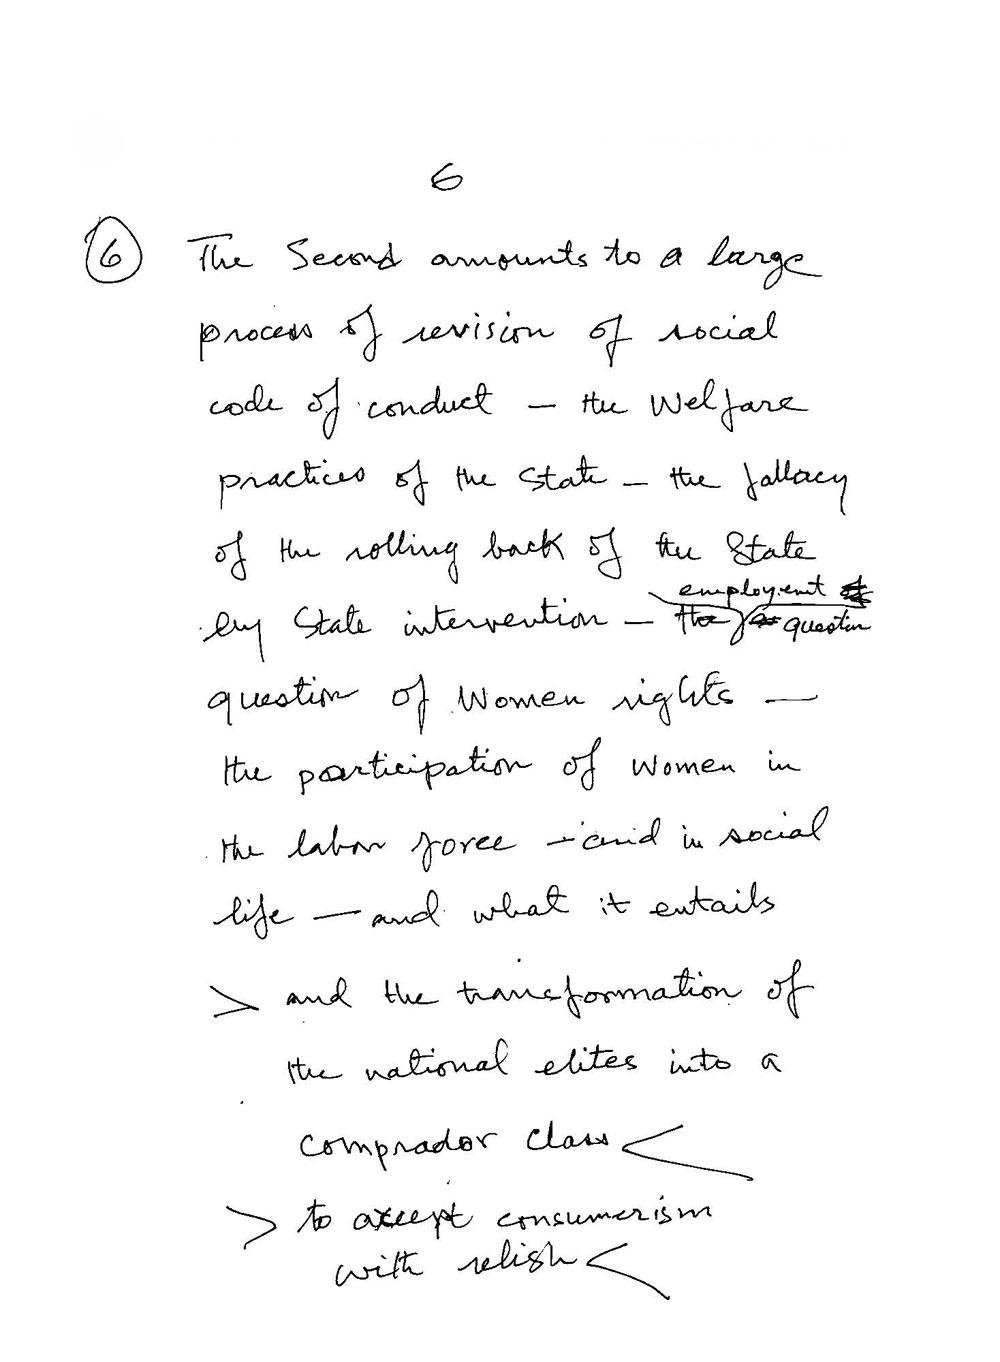 6
6 The Second amounts to a large
process of revision of social
code of conduct — the Welfare
practices of the State — the fallacy
of the rolling back of the State
employment
by State intervention — the question
question of Women rights —
the participation of Women in
the labor force — and in social
life — and what it entails
> and the transformation of
the national elites into a
comprador class <
> to accept consumerism
with relish <